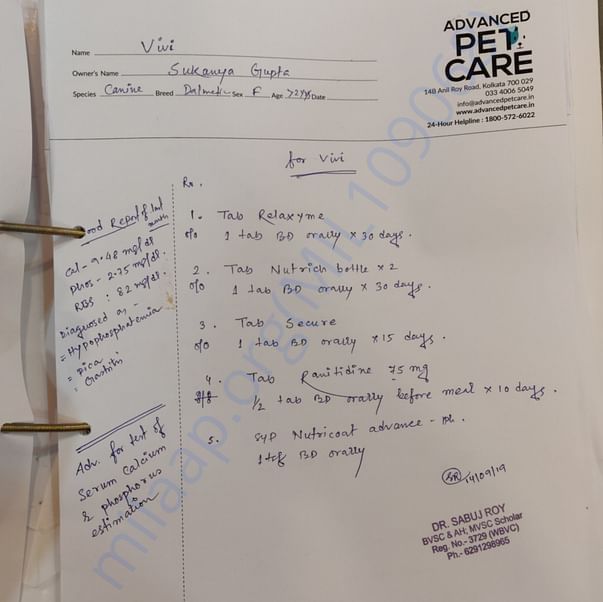 ADVANCED
PET
CARE
14B Anil Roy Road, Kolkata 700 029
033 4006 5049
info@advancedpetcare.in
www.advancedpetcare.in
24-Hour Helpline : 1800-572-6022
Name Vivi
Owner's Name Sukanya Gupta
Species Canine Breed Sex F Age >2yrs Date
for Vivi
Rx.
1. Tab Relaxyme
1 tab BD orally x 30 days.
2. Tab Nutrich bottle x 2
1 tab BD orally x 30 days.
3. Tab Secure
1 tab BD orally x 15 days.
4. Tab Ranitidine 75 mg
1/2 tab BD orally before meal x 10 days.
5. Syp Nutricoat advance -
BD orally
14/09/19
Report of last month
Cal - 9.48 mg/dl
Phos - 2.75 mg/dl.
RBS : 82 mg/dl.
Diagnosed as -
= Hypophosphatemia
= Pica
Adv. for test of
Serum Calcium
& phosphorus
estimation
DR. SABUJ ROY
BVSC & AH, MVSC Scholar
Reg. No.- 3729 (WBVC)
Ph.- 6291298965